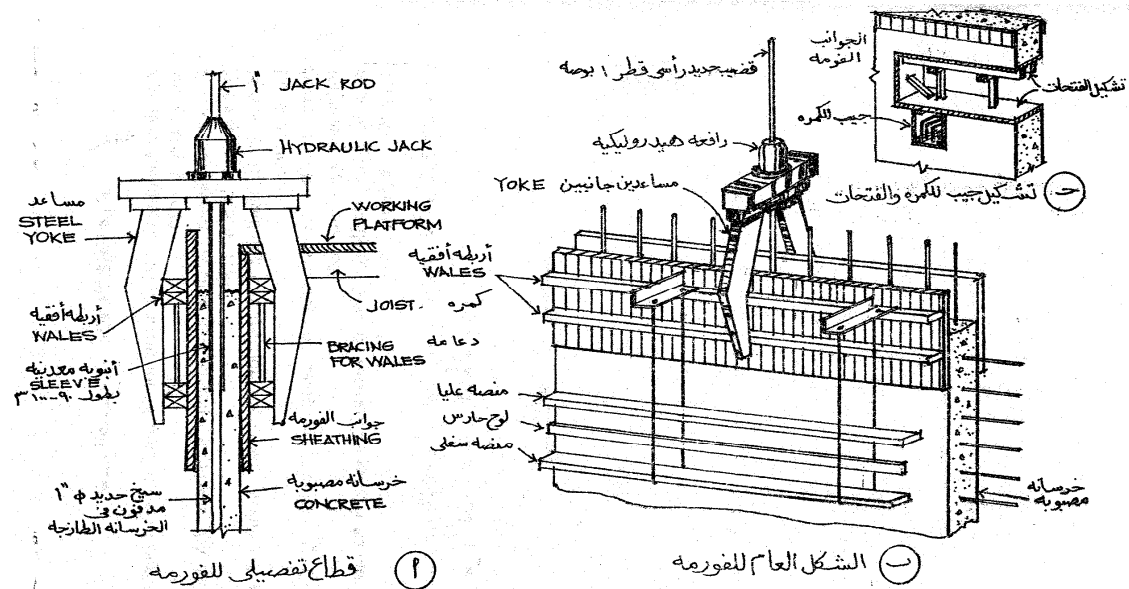 1" JACK ROD
HYDRAULIC JACK
مساعد
STEEL
YOKE
WORKING
PLATFORM
كمره
JOIST.
أربطه أفقيه
WALES
دعامه
BRACING
FOR WALES
أنبوبه معدنيه
SLEEVE
بطول ٩٠-١٠٠
جوانب الفورمه
SHEATHING
خرسانه مصبوبه
CONCRETE
سيخ حديد φ 1"
مدفون فى
الخرسانه الطازجه
أ قطاع تفصيلى للفورمه
قضيب حديد رأسى قطر ١ بوصه
رافعه هيدروليكيه
مساعدين جانبيين YOKE
أربطه أفقيه
WALES
منصه عليا
لوح حارس
منصه سفلى
خرسانه
مصبوبه
ب الشكل العام للفورمه
الجوانب
الفورمه
تشكيل الفتحات
جيب للكمره
حـ تشكيل جيب للكمره والفتحات